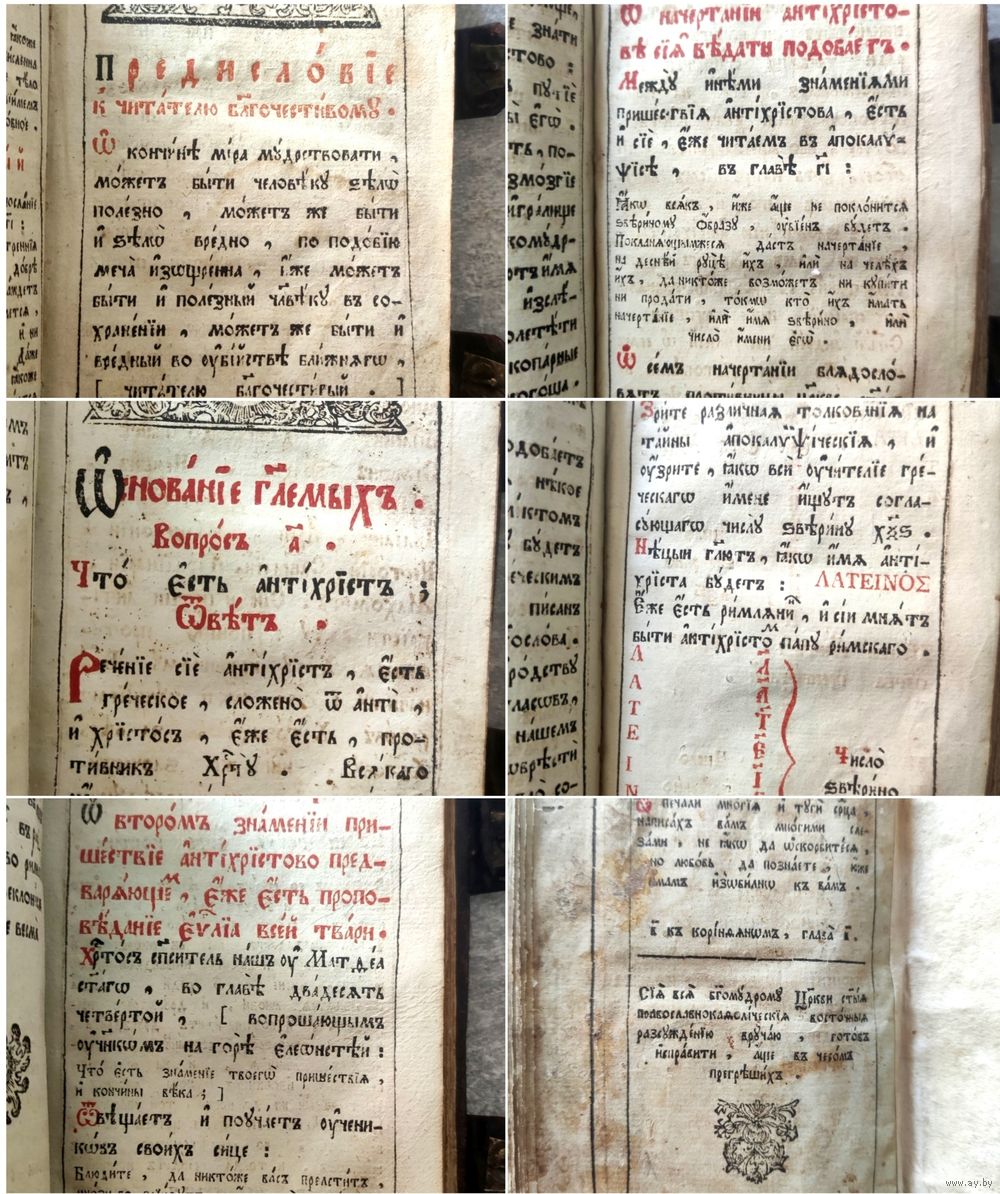 Предисло́вїе
к̾ чита́телю бл҃гочести́вому .
Ѡ҆ кончи́нѣ мі́ра мꙋ́дрствовати ,
мо́жетъ бы́ти человѣ́кꙋ ѕѣлѡ̀
поле́зно , мо́жетъ же бы́ти
и҆ ѕѣлѡ̀ вре́дно , по подо́бїю
меча̀ и҆зѡщре́нна , и҆́же мо́жетъ
бы́ти и҆ поле́зный чл҃вѣ́кꙋ въ со-
хране́нїи , мо́жетъ же бы́ти и҆
вре́дный во ᲂу҆бі́йствѣ бли́жнягѡ ,
[ чита́телю бл҃гочести́вый . ]
Ѡ҆ наче́ртанїи антїхрі́сто-
вѣ сїѧ̑ вѣ́дати подоба́етъ .
Междꙋ̀ и҆нѣ́ми зна́менїѧми
прише́ствїѧ а҆нтїхрі́стова , є҆́сть
и҆ сїѐ , є҆́же чита́емъ въ а҆покалѵ́-
ѱїсѣ , въ главѣ̀ г҃і :
Ꙗ҆́кѡ всѧ́къ , и҆́же а҆́ще не покло́нитсѧ
ѕвѣ́риномꙋ ѻ҆́бразꙋ , ᲂу҆бїе́нъ бꙋ́детъ .
Покланѧ́ющымжесѧ да́стъ начерта́нїе ,
на десне́й рꙋцѣ̀ и҆́хъ , и҆лѝ на че́лѣхъ
и҆́хъ , да никто́же возмо́жетъ ни кꙋпи́ти
ни прода́ти , то́кмѡ кто̀ и҆́хъ и҆́мать
начерта́нїе , и҆лѝ и҆́мѧ ѕвѣ́рино , и҆лѝ
число̀ и҆́мени є҆гѡ̀ .
Ѡ҆ се́мъ начерта́нїи блѧдосло́-
Ѡ҆снова́нїе гл҃емыхъ .
Вопро́съ а҃ .
Что̀ є҆́сть а҆нтїхрі́стъ ;
Ѿвѣ́тъ .
Рече́нїе сїѐ а҆нтїхрі́стъ , є҆́сть
гре́ческое , сложено̀ ѿ а҆нтѝ ,
и҆ хрїсто́съ , є҆́же є҆́сть , про-
ти́вникъ Хрⷭ҇тꙋ̀ . Всѧ́каго
Зри́те разли́чнаѧ толкова́нїѧ на
та́йны а҆покалѵѱі́ческїѧ , и҆
ᲂу҆́зрите , ꙗ҆́кѡ всѝ ᲂу҆чи́телїе гре́-
ческагѡ и҆́мене и҆́щꙋтъ согла-
сꙋ́ющагѡ числꙋ̀ ѕвѣ́ринꙋ хѯѕ .
Нѣ́цыи гл҃ютъ , ꙗ҆́кѡ и҆́мѧ а҆нтї-
хрі́ста бꙋ́детъ : ΛΑΤΕΙΝΟΣ
Є҆́же є҆́сть ри́млѧнинъ , и҆ сїи мнѧ́тъ
бы́ти а҆нтїхрі́стомъ па́пꙋ ри́мскаго .
Λ
Α
Τ
Ε
Ι
Ν
Число̀
ѕвѣ́рино
Ѡ҆ второ́мъ зна́менїи при-
ше́ствїе а҆нтїхрі́стово пред-
варѧ́ющїем , є҆́же є҆́сть пропо-
вѣ́данїе є҆ѵⷢ҇лїа все́й тва́ри .
Хрⷭ҇то́съ сп҃си́тель на́шъ ᲂу҆ Матѳе́а
ст҃а́гѡ , во главѣ̀ два́десѧть
четве́ртой , [ вопроша́ющымъ
ᲂу҆чн҃кѡ́мъ на горѣ̀ є҆леѡ́нстѣй :
Что̀ є҆́сть зна́менїе твоегѡ̀ прише́ствїѧ ,
и҆ кончи́ны вѣ́ка ; ]
Ѿвѣща́етъ и҆ поꙋча́етъ ᲂу҆чени-
кѡ́въ свои́хъ си́це :
Блюди́те , да никто́же ва́съ прелсти́тъ ,
Ѿ печа́ли мно́гїѧ и҆ тꙋги̑ срⷣца ,
написа́хъ ва́мъ мно́гими сле-
за́ми , не ꙗ҆́кѡ да ѡ҆скорби́тесѧ ,
но любо́вь да позна́ете , ю҆́же
и҆́мамъ и҆зѡби́лнѡ къ ва́мъ .
к҃ къ корі́нѳѧнѡмъ , глава̀ в҃ .
Сїѧ̑ всѧ̑ бг҃омꙋ́дромꙋ Цр҃кви ст҃ы́ѧ
правосла́внокаѳолі́ческїѧ восто́чныѧ
разсꙋжде́нїю врꙋча́ю , гото́въ
и҆спра́вити , а҆́ще въ че́сомъ
прегрѣши́хъ .
www.ay.by